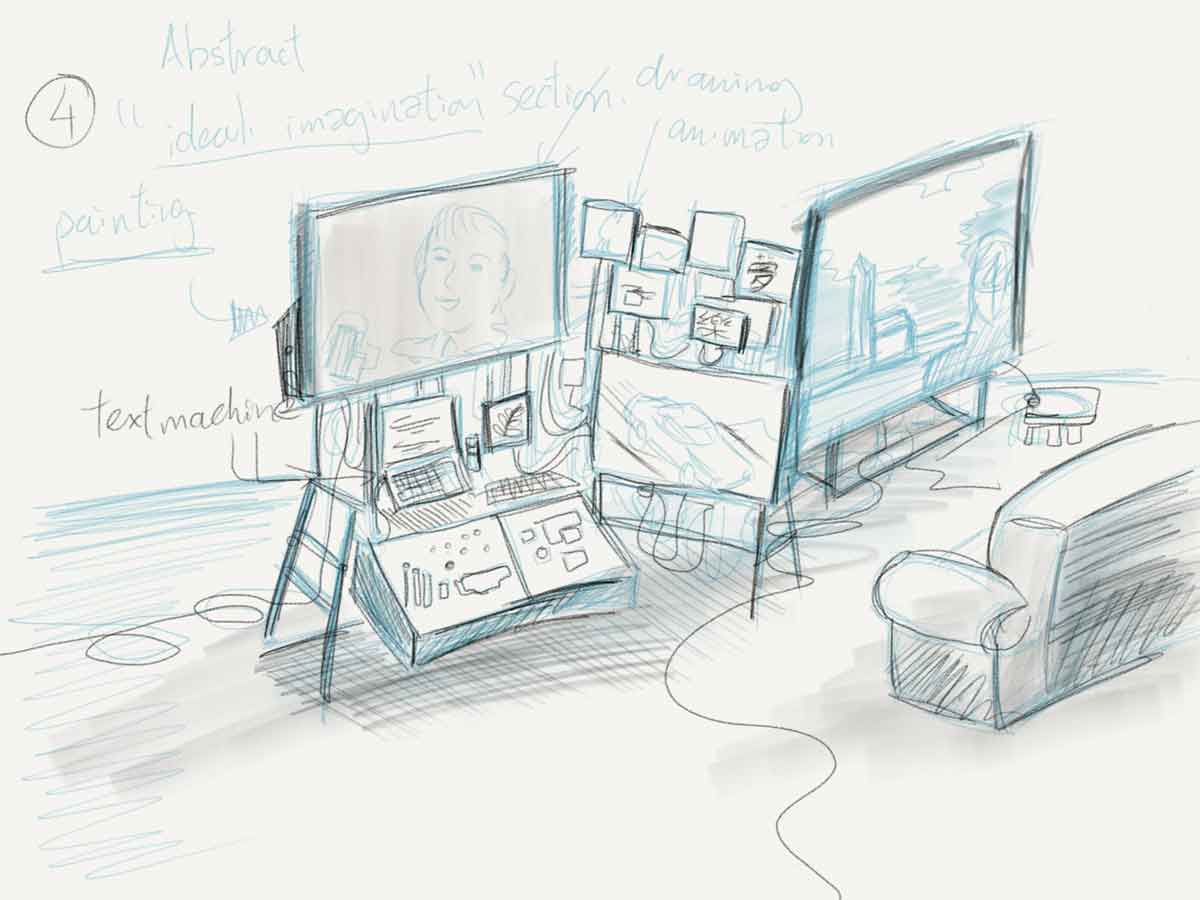 Abstract
④ "ideal. imagination" section.
drawing
animation
painting
textmachine
夢